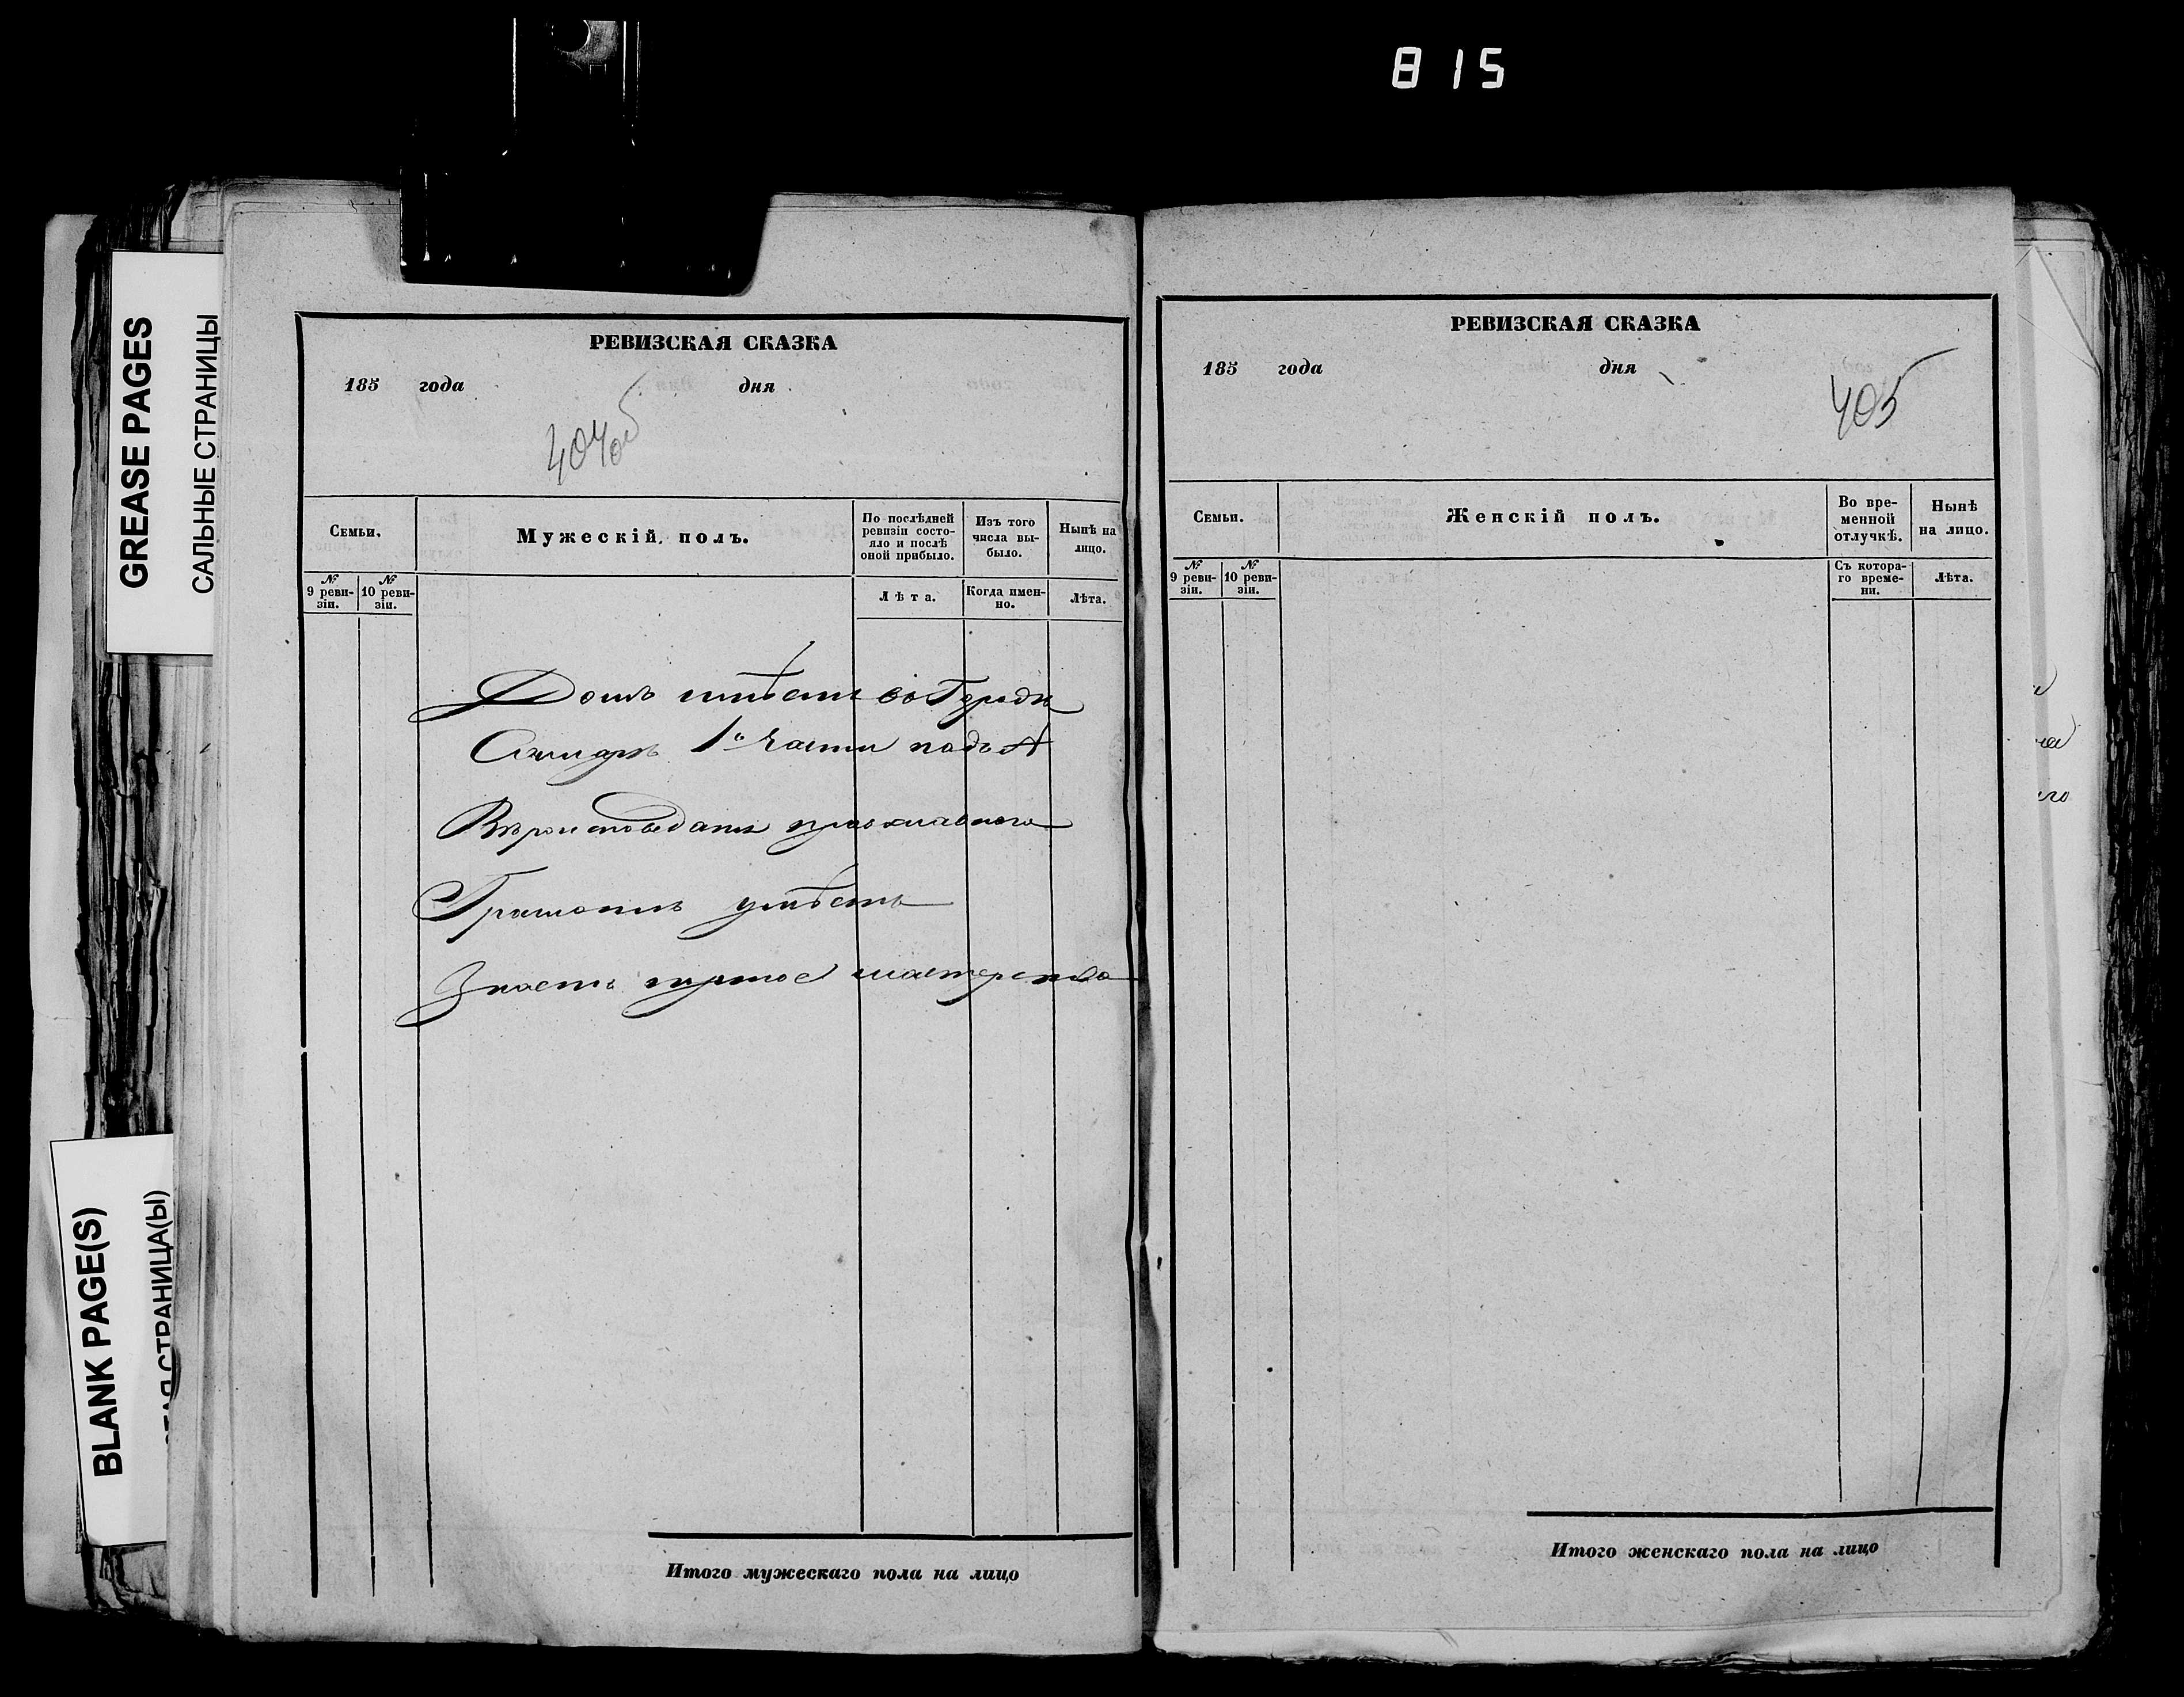 815
GREASE PAGES
САЛЬНЫЕ СТРАНИЦЫ
BLANK PAGE(S)
СТРАНИЦА(Ы)
РЕВИЗСКАЯ СКАЗКА
185 года дня
404об
Семьи.
Мужескій полъ.
По послѣдней ревизіи состо-
яло и послѣ
оной прибыло.
Изъ того
числа вы-
было.
Нынѣ на
лицо.
№
9 реви-
зіи.
№
10 реви-
зіи.
Лѣта.
Когда имен-
но.
Лѣта.
Домъ имѣетъ въ Городѣ
1й части подъ №
Вѣроисповѣданія православнаго
Грамотѣ умѣетъ
Знаетъ мастерство
Итого мужескаго пола на лицо
РЕВИЗСКАЯ СКАЗКА
185 года дня
405
Семьи.
Женскій полъ.
Во вре-
менной
отлучкѣ.
Нынѣ
на лицо.
№
9 реви-
зіи.
№
10 реви-
зіи.
Съ котора-
го време-
ни.
Лѣта.
Итого женскаго пола на лицо